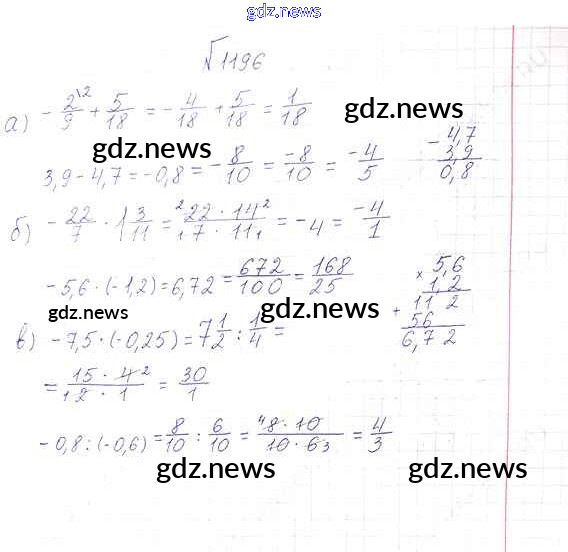 gdz.news
√1196
а) -2/9\2 + 5/18 = -4/18 + 5/18 = 1/18
gdz.news
gdz.news
3,9 - 4,7 = -0,8 = -8/10 = -8/10 = -4/5
- 4,7
3,9
0,8
б) -22/7 · 1 3/11 = 22 · 14/7 · 11 = -4 = -4/1
-5,6 · (-1,2) = 6,72 = 672/100 = 168/25
× 5,6
1,2
+ 11 2
56
6,7 2
gdz.news
gdz.news
в) -7,5 · (-0,25) = 7 1/2 : 1/4 =
= 15 · 4/2 · 1 = 30/1
-0,8 : (-0,6) = 8/10 : 6/10 = 8 · 10/10 · 6 = 4/3
gdz.news
gdz.news